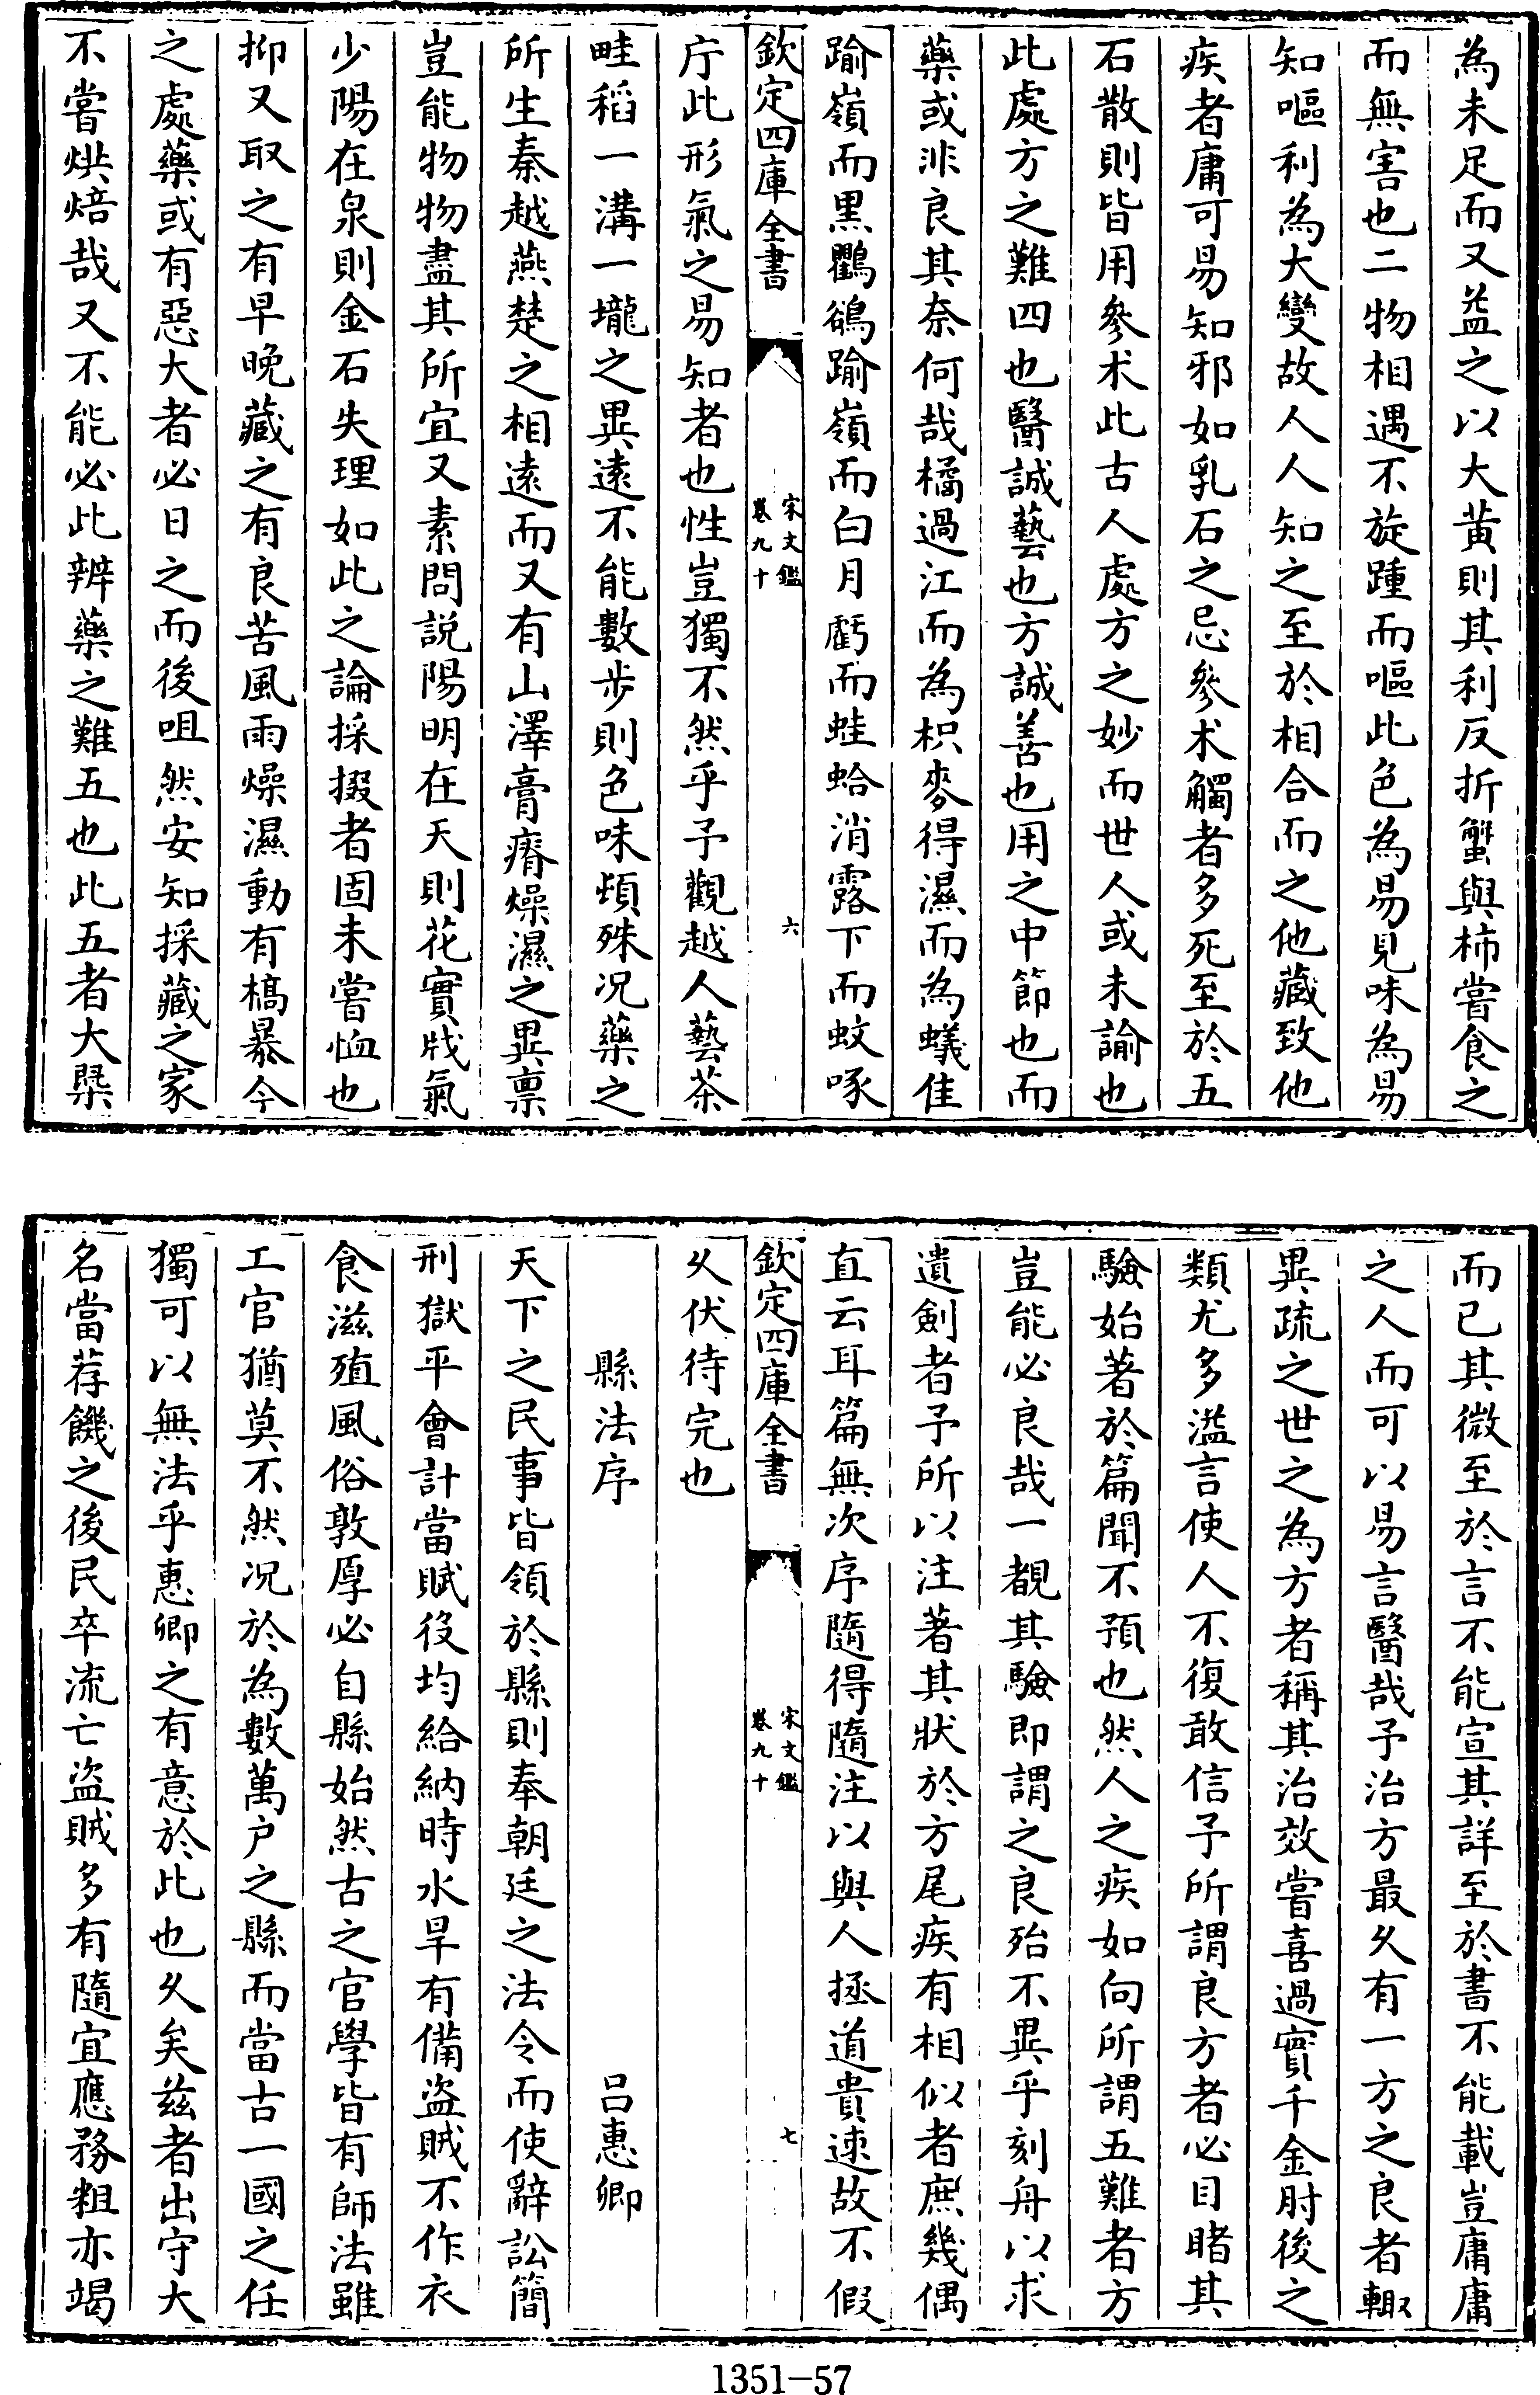 為未足而又益之以大黄則其利反折蟹與柿嘗食之
而無害也二物相遇不旋踵而嘔此色為易見味為易
知嘔利為大變故人人知之至於相合而之他藏致他
疾者庸可易知邪如乳石之忌參术觸者多死至於五
石散則皆用參术此古人處方之妙而世人或未諭也
此處方之難四也醫誠藝也方誠善也用之中節也而
藥或非良其奈何哉橘過江而為枳麥得濕而為蟻隹
踰嶺而黒鸜鵒踰嶺而白月虧而蛙蛤消露下而蚊啄
欽定四庫全書 宋文鑑 卷九十 六
庁此形氣之易知者也性豈獨不然乎予觀越人藝茶
畦稻一溝一壠之異遠不能數步則色味頓殊况藥之
所生秦越燕楚之相遠而又有山澤膏瘠燥濕之異禀
豈能物物盡其所宜又素問説陽明在天則花實戕氣
少陽在泉則金石失理如此之論採掇者固未嘗恤也
抑又取之有早晚藏之有良苦風雨燥濕動有槁暴今
之處藥或有惡大者必日之而後咀然安知採藏之家
不嘗烘焙哉又不能必此辨藥之難五也此五者大槩
而已其微至於言不能宣其詳至於書不能載豈庸庸
之人而可以易言醫哉予治方最乆有一方之良者輙
異疏之世之為方者稱其治效嘗喜過實千金肘後之
類尤多溢言使人不復敢信予所謂良方者必目睹其
驗始著於篇聞不預也然人之疾如向所謂五難者方
豈能必良哉一覩其驗即謂之良殆不異乎刻舟以求
遺劍者予所以注著其狀於方尾疾有相似者庶幾偶
直云耳篇無次序隨得隨注以與人拯道貴速故不假
欽定四庫全書 宋文鑑 卷九十 七
乆伏待完也
縣法序 吕惠卿
天下之民事皆領於縣則奉朝廷之法令而使辭訟簡
刑獄平會計當賦役均給納時水旱有備盜賊不作衣
食滋殖風俗敦厚必自縣始然古之官學皆有師法雖
工官猶莫不然况於為數萬户之縣而當古一國之任
獨可以無法乎惠卿之有意於此也乆矣兹者出守大
名當荐饑之後民卒流亡盜賊多有隨宜應務粗亦竭
1351-57